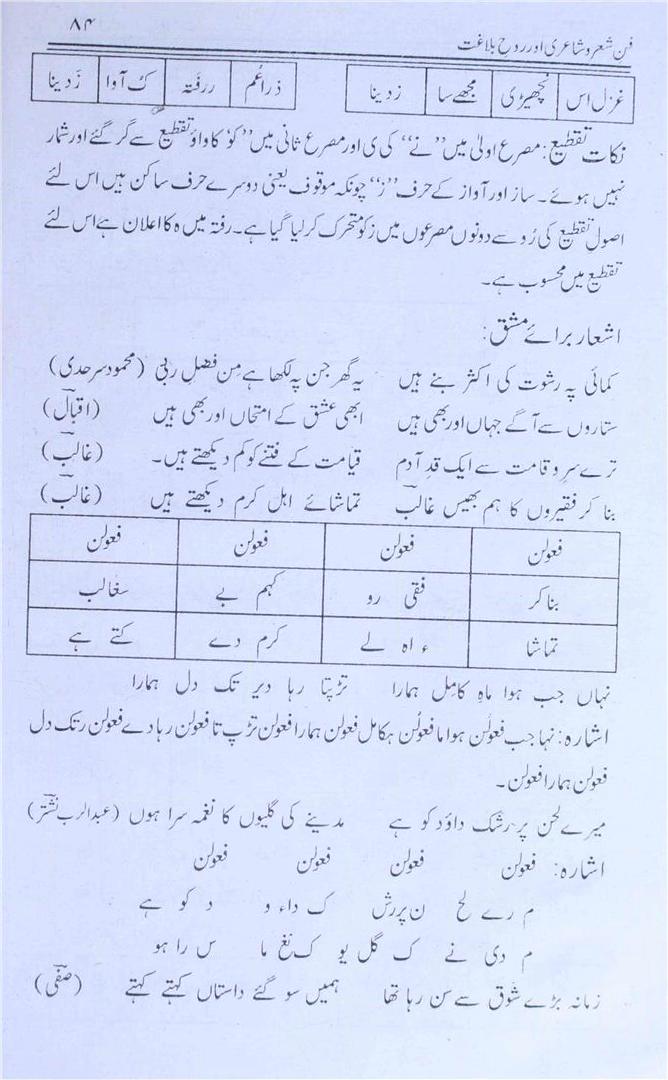 فن شعر و شاعری اور روحِ بلاغت ۸۴
غزل اس | نچھیڑی | مجھے سا | ز دینا | ذرا عُم | ررفتہ | ک آوا | زَ دینا
نکات تقطیع: مصرع اولیٰ میں ”نے“ کی ی اور مصرع ثانی میں ”کو“ کا واؤ تقطیع سے گر گئے اور شمار
نہیں ہوئے۔ ساز اور آواز کے حرف ”ز“ چونکہ موقوف یعنی دوسرے حرف ساکن ہیں اس لئے
اصولِ تقطیع کی رُو سے دونوں مصرعوں میں ز کو متحرک کر لیا گیا ہے۔ رفتہ میں ہ کا اعلان ہے اس لئے
تقطیع میں محسوب ہے۔
اشعار برائے مشق:
کمائی پہ رشوت کی اکثر بنے ہیں یہ گھر جن پہ لکھا ہے مِن فضلِ ربی (محمود سرحدی)
ستاروں سے آگے جہاں اور بھی ہیں ابھی عشق کے امتحاں اور بھی ہیں (اقبالؔ)
ترے سرو قامت سے ایک قدِ آدم قیامت کے فتنے کو کم دیکھتے ہیں۔ (غالبؔ)
بنا کر فقیروں کا ہم بھیس غالبؔ تماشائے اہل کرم دیکھتے ہیں (غالبؔ)
فعولن | فعولن | فعولن | فعولن
بنا کر | فقی رو | کہم بے | سغالب
تماشا | ء اہ لے | کرم دے | کتے ہے
نہاں جب ہوا ماہِ کامِل ہمارا تڑپتا رہا دیر تک دل ہمارا
اشارہ: نہا جب فعولن ہوا ما فعولن ہکامل فعولن ہمارا فعولن تڑپ تا فعولن رہا دے فعولن رتک دل
فعولن ہمارا فعولن۔
میرے لحن پر رشک داؤد کو ہے مدینے کی گلیوں کا نغمہ سرا ہوں (عبدالرب نشترؔ)
اشارہ: فعولن فعولن فعولن فعولن
م رے لح ن پر رش ک داء و د کو ہے
م دی نے ک گل یو ک نغ ما س را ہو
زمانہ بڑے شوق سے سن رہا تھا ہمیں سو گئے داستاں کہتے کہتے (صفیؔ)